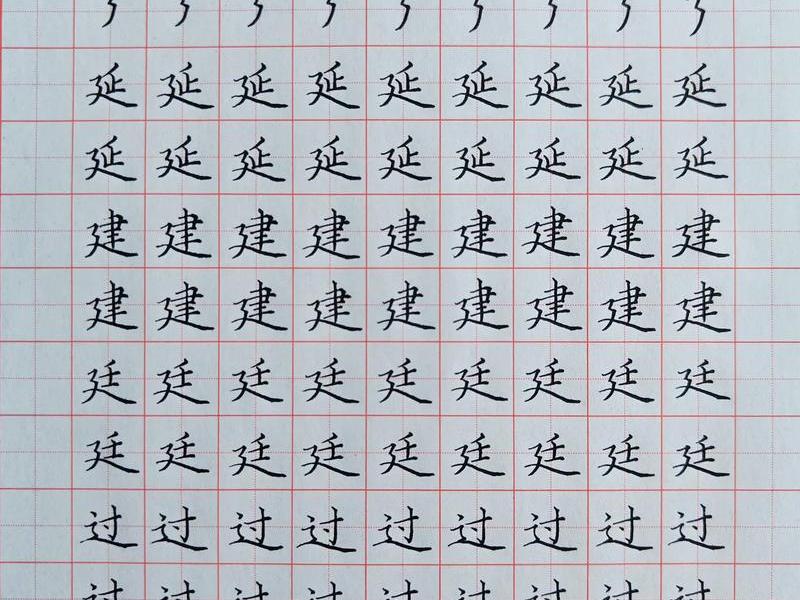 延延延延延延延延延
延延延延延延延延延
建建建建建建建建建
建建建建建建建建建
廷廷廷廷廷廷廷廷廷
廷廷廷廷廷廷廷廷廷
过过过过过过过过过
过过过过过过过过过